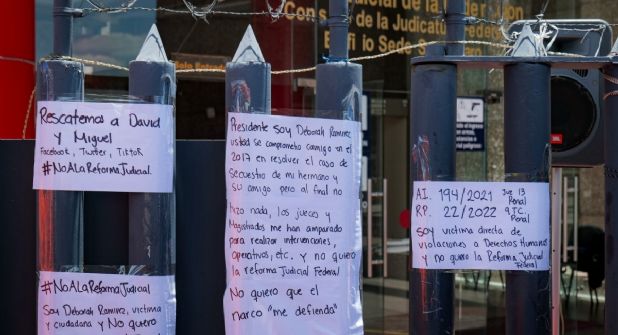 Consejo de la Judicatura Federal
Edificio Sede
Solo Entrada
Rescatemos a David
y Miguel
Facebook, Twiter, TikTok
#NoALaReformaJudicial
#NoALaReformaJudicial
Soy Deborah Ramirez, victima
y ciudadana y No quiero
Presidente soy Deborah Ramirez,
usted se comprometio conmigo en el
2017 en resolver el caso de
secuestro de mi hermano y
su amigo pero al final no
hizo nada, los jueces y
Magistrados me han amparado
para realizar intervenciones,
operativos, etc. y no quiero
la reforma Judicial Federal
No quiero que el
narco "me defienda"
A.I. 194/2021 Juz 13
Penal
R.P. 22/2022 9 T.C.
Penal
Soy victima directa de
violaciones a Derechos Humanos
y no quiero la Reforma Judicial
Federal